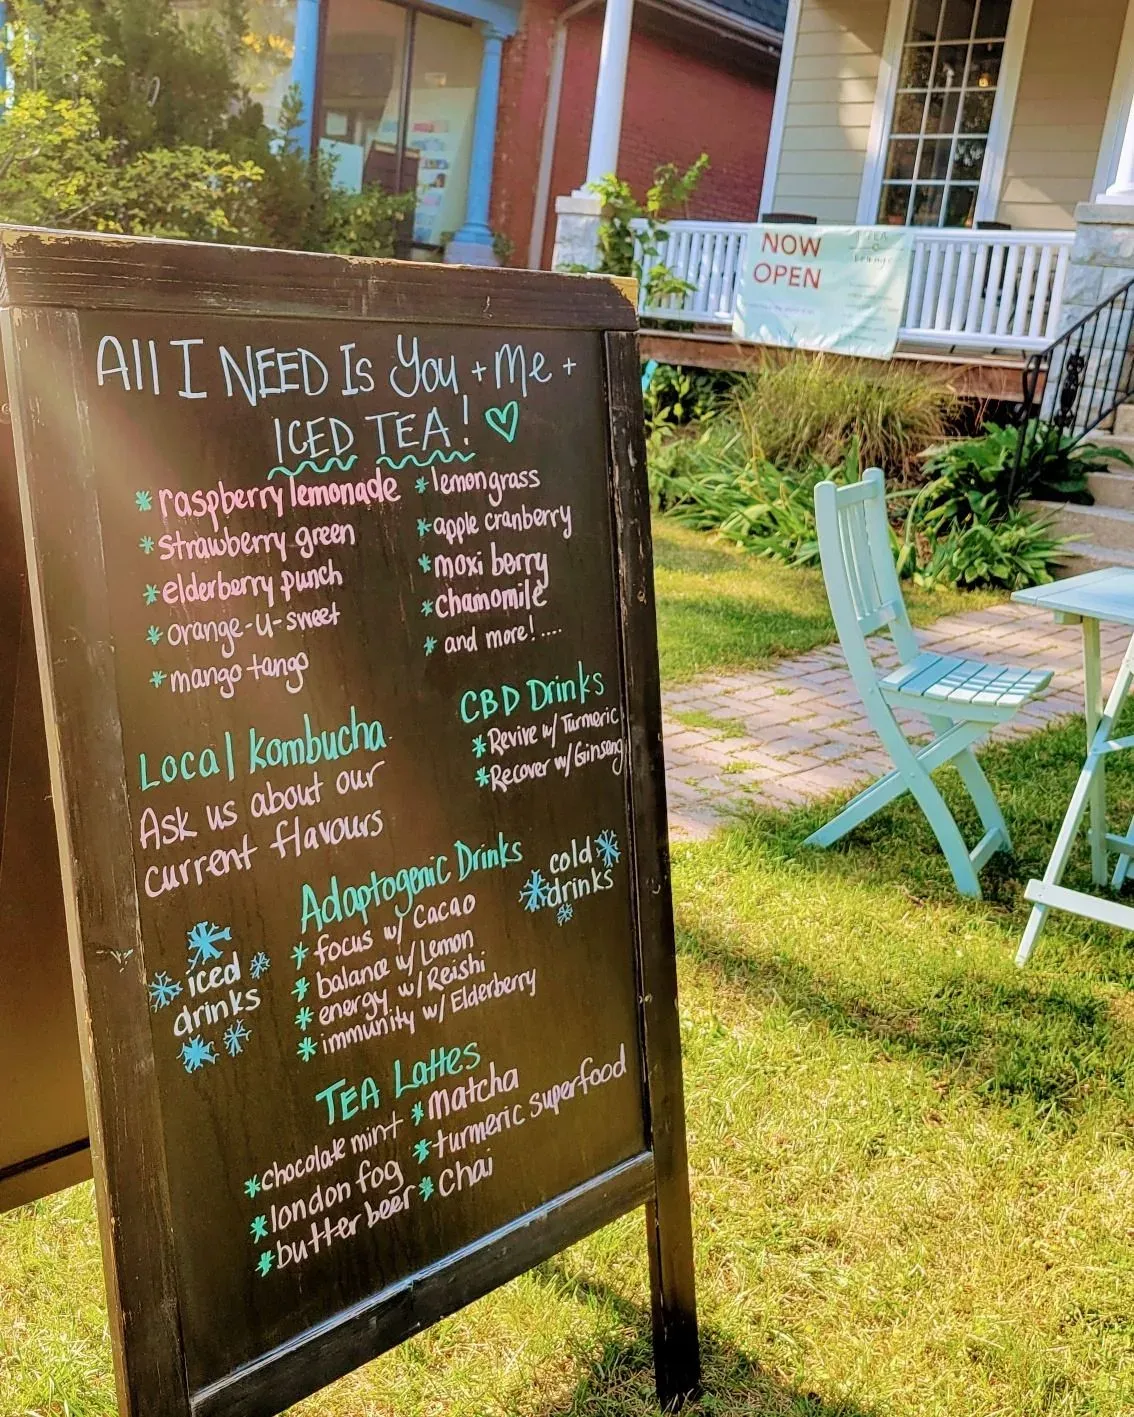 NOW
OPEN
TEA
lounge
All I NEED Is You + Me +
ICED TEA!
* raspberry lemonade
* strawberry green
* elderberry punch
* orange-u-sweet
* mango tango
* lemongrass
* apple cranberry
* moxi berry
* chamomile
* and more! ....
CBD Drinks
* Revive w/ Turmeric
* Recover w/ Ginseng
Local Kombucha
Ask us about our
current flavours
Adaptogenic Drinks
* focus w/ Cacao
* balance w/ Lemon
* energy w/ Reishi
* immunity w/ Elderberry
cold
drinks
iced
drinks
TEA Lattes
* chocolate mint
* london fog
* butter beer
* matcha
* turmeric superfood
* chai